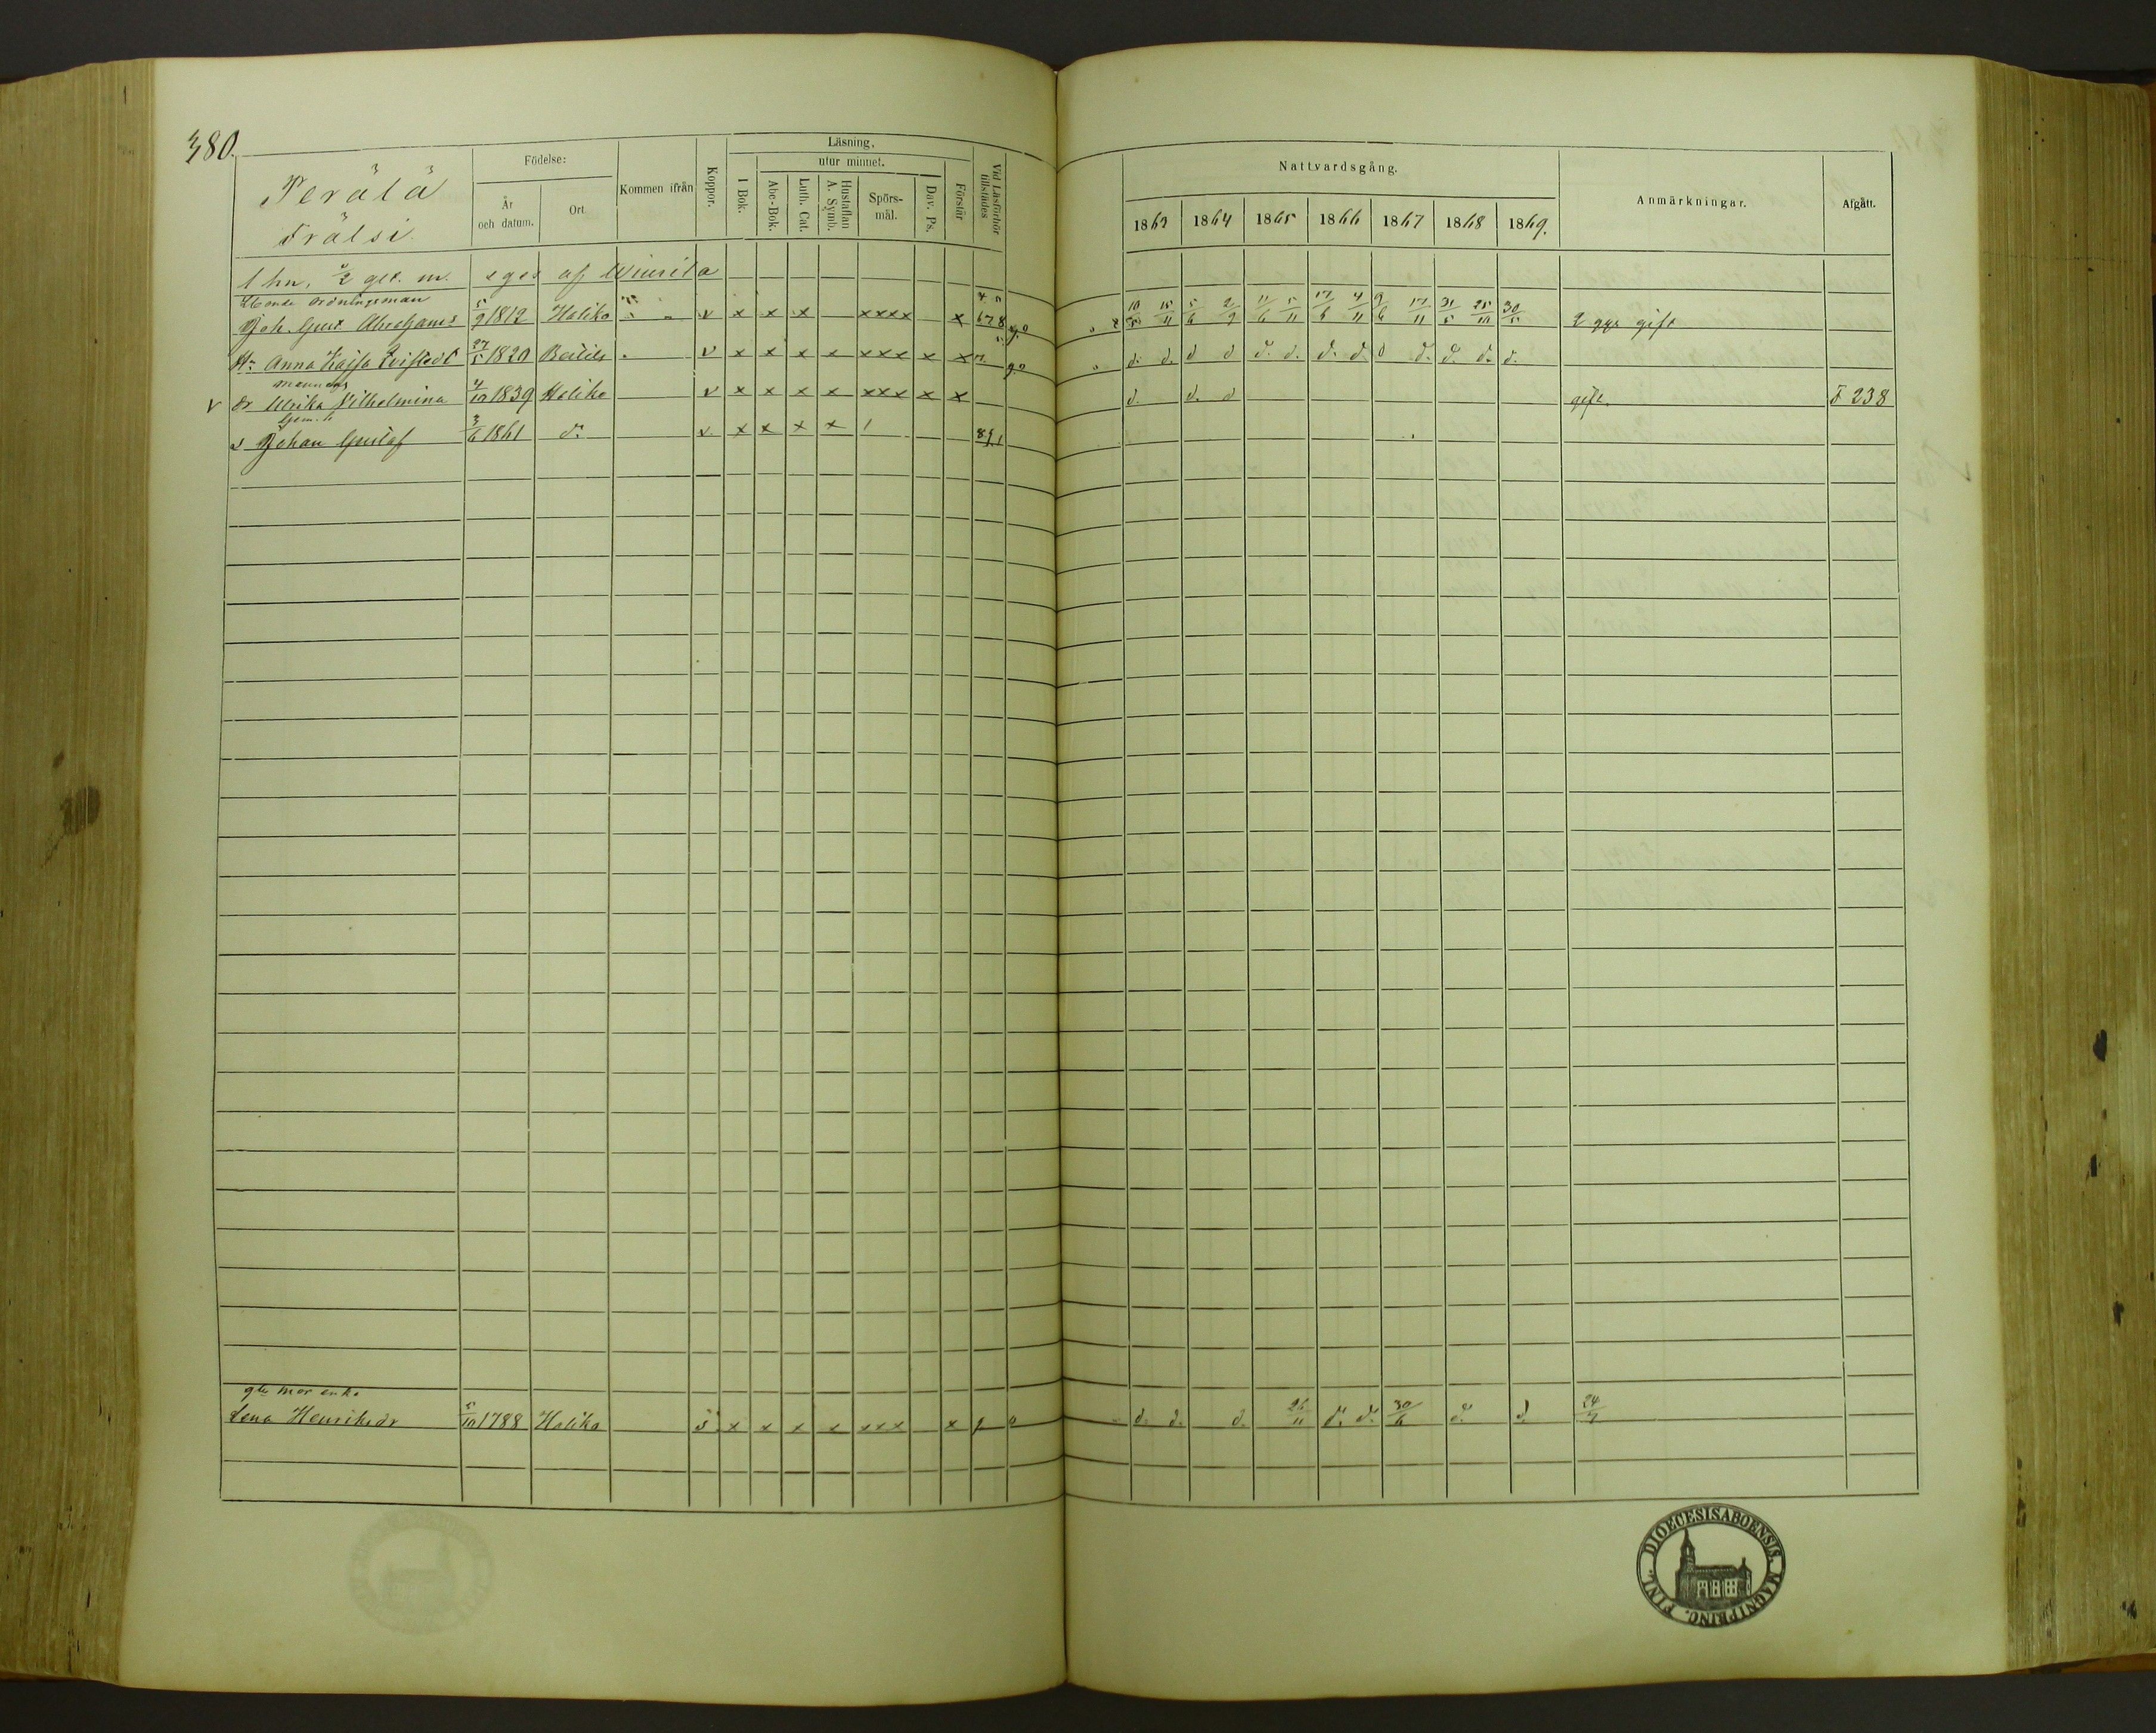 380.
Perälä
Frälsi.
Födelse:
År och datum.
Ort
Kommen ifrån
Koppor.
Läsning.
I Bok.
utur minnet.
Abc-Bok.
Luth. Cat.
Hustaflan A. Symb.
Spörsmål.
Dav. Ps.
Förstår
Vid Läsförhör tillstädes
Nattvardsgång.
1863 1864 1865 1866 1867 1868 1869.
Anmärkningar.
Afgått.
1 hn, ½ get. m. eges af Wiurila
Bonde ordningsman
Joh. Gust. Abrahams 5/9 1812 Haliko v x x x xxxx x 678 10/5 15/11 5/6 2/9 11/6 5/11 17/6 4/11 9/6 17/11 31/5 25/10 30/5 2 ggr gift
Hu Anna Kajsa 27/5 1820 v x x x x xxx x x d. d. d d d. d. d. d. d d. d. d. d.
mannens
v dr Ulrika Vilhelmina 4/10 1839 Haliko v x x x x xxx x x d. d. d gift. F 238
s Johan Gustaf 3/6 1861 do v. x x x x 1 891
mor enka
Lena Henriksdr 5/10 1788 Haliko s x x x x xxx x d. d. d. 26/11 d. d. 30/6 d. d. 24/7
DIOECESIS ABOENSIS. MAGNI PRINC. FINL.